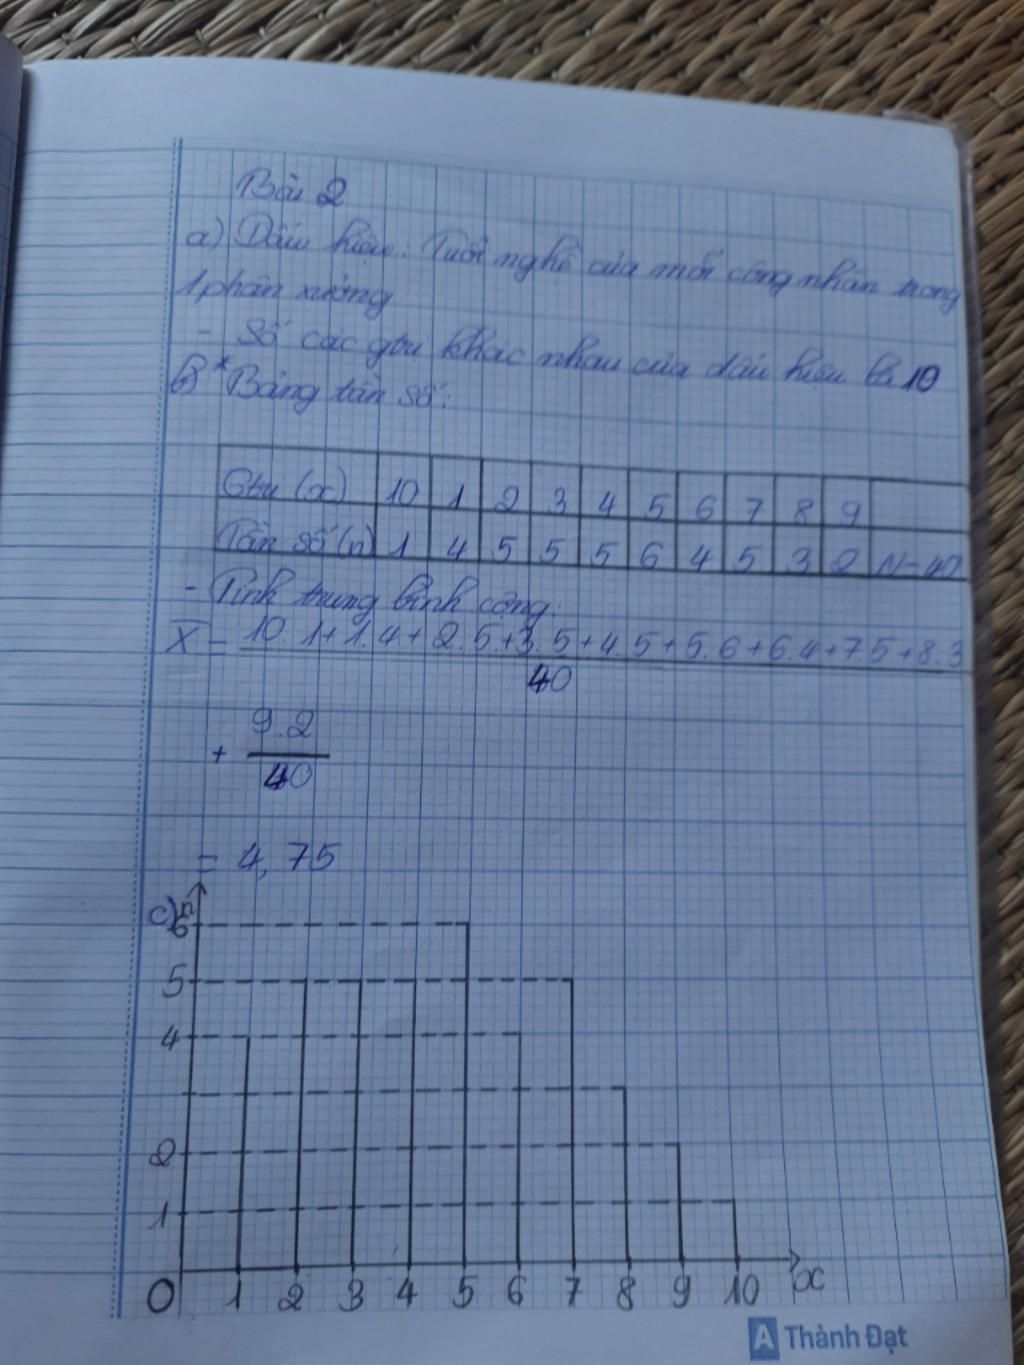 Bài 2
a) Dấu hiệu: Tuổi nghề của mỗi công nhân trong
1 phân xưởng
- Số các gtrị khác nhau của dấu hiệu là 10
b) * Bảng tần số:
Gtrị (x) 10 1 2 3 4 5 6 7 8 9
Tần số (n) 1 4 5 5 5 6 4 5 3 2 N=40
- Tính trung bình cộng:
X̄ = 10.1+1.4+2.5+3.5+4.5+5.6+6.4+7.5+8.3
40
+ 9.2
40
= 4,75
c) n
6
5
4
2
1
0 1 2 3 4 5 6 7 8 9 10 x
A Thành Đạt